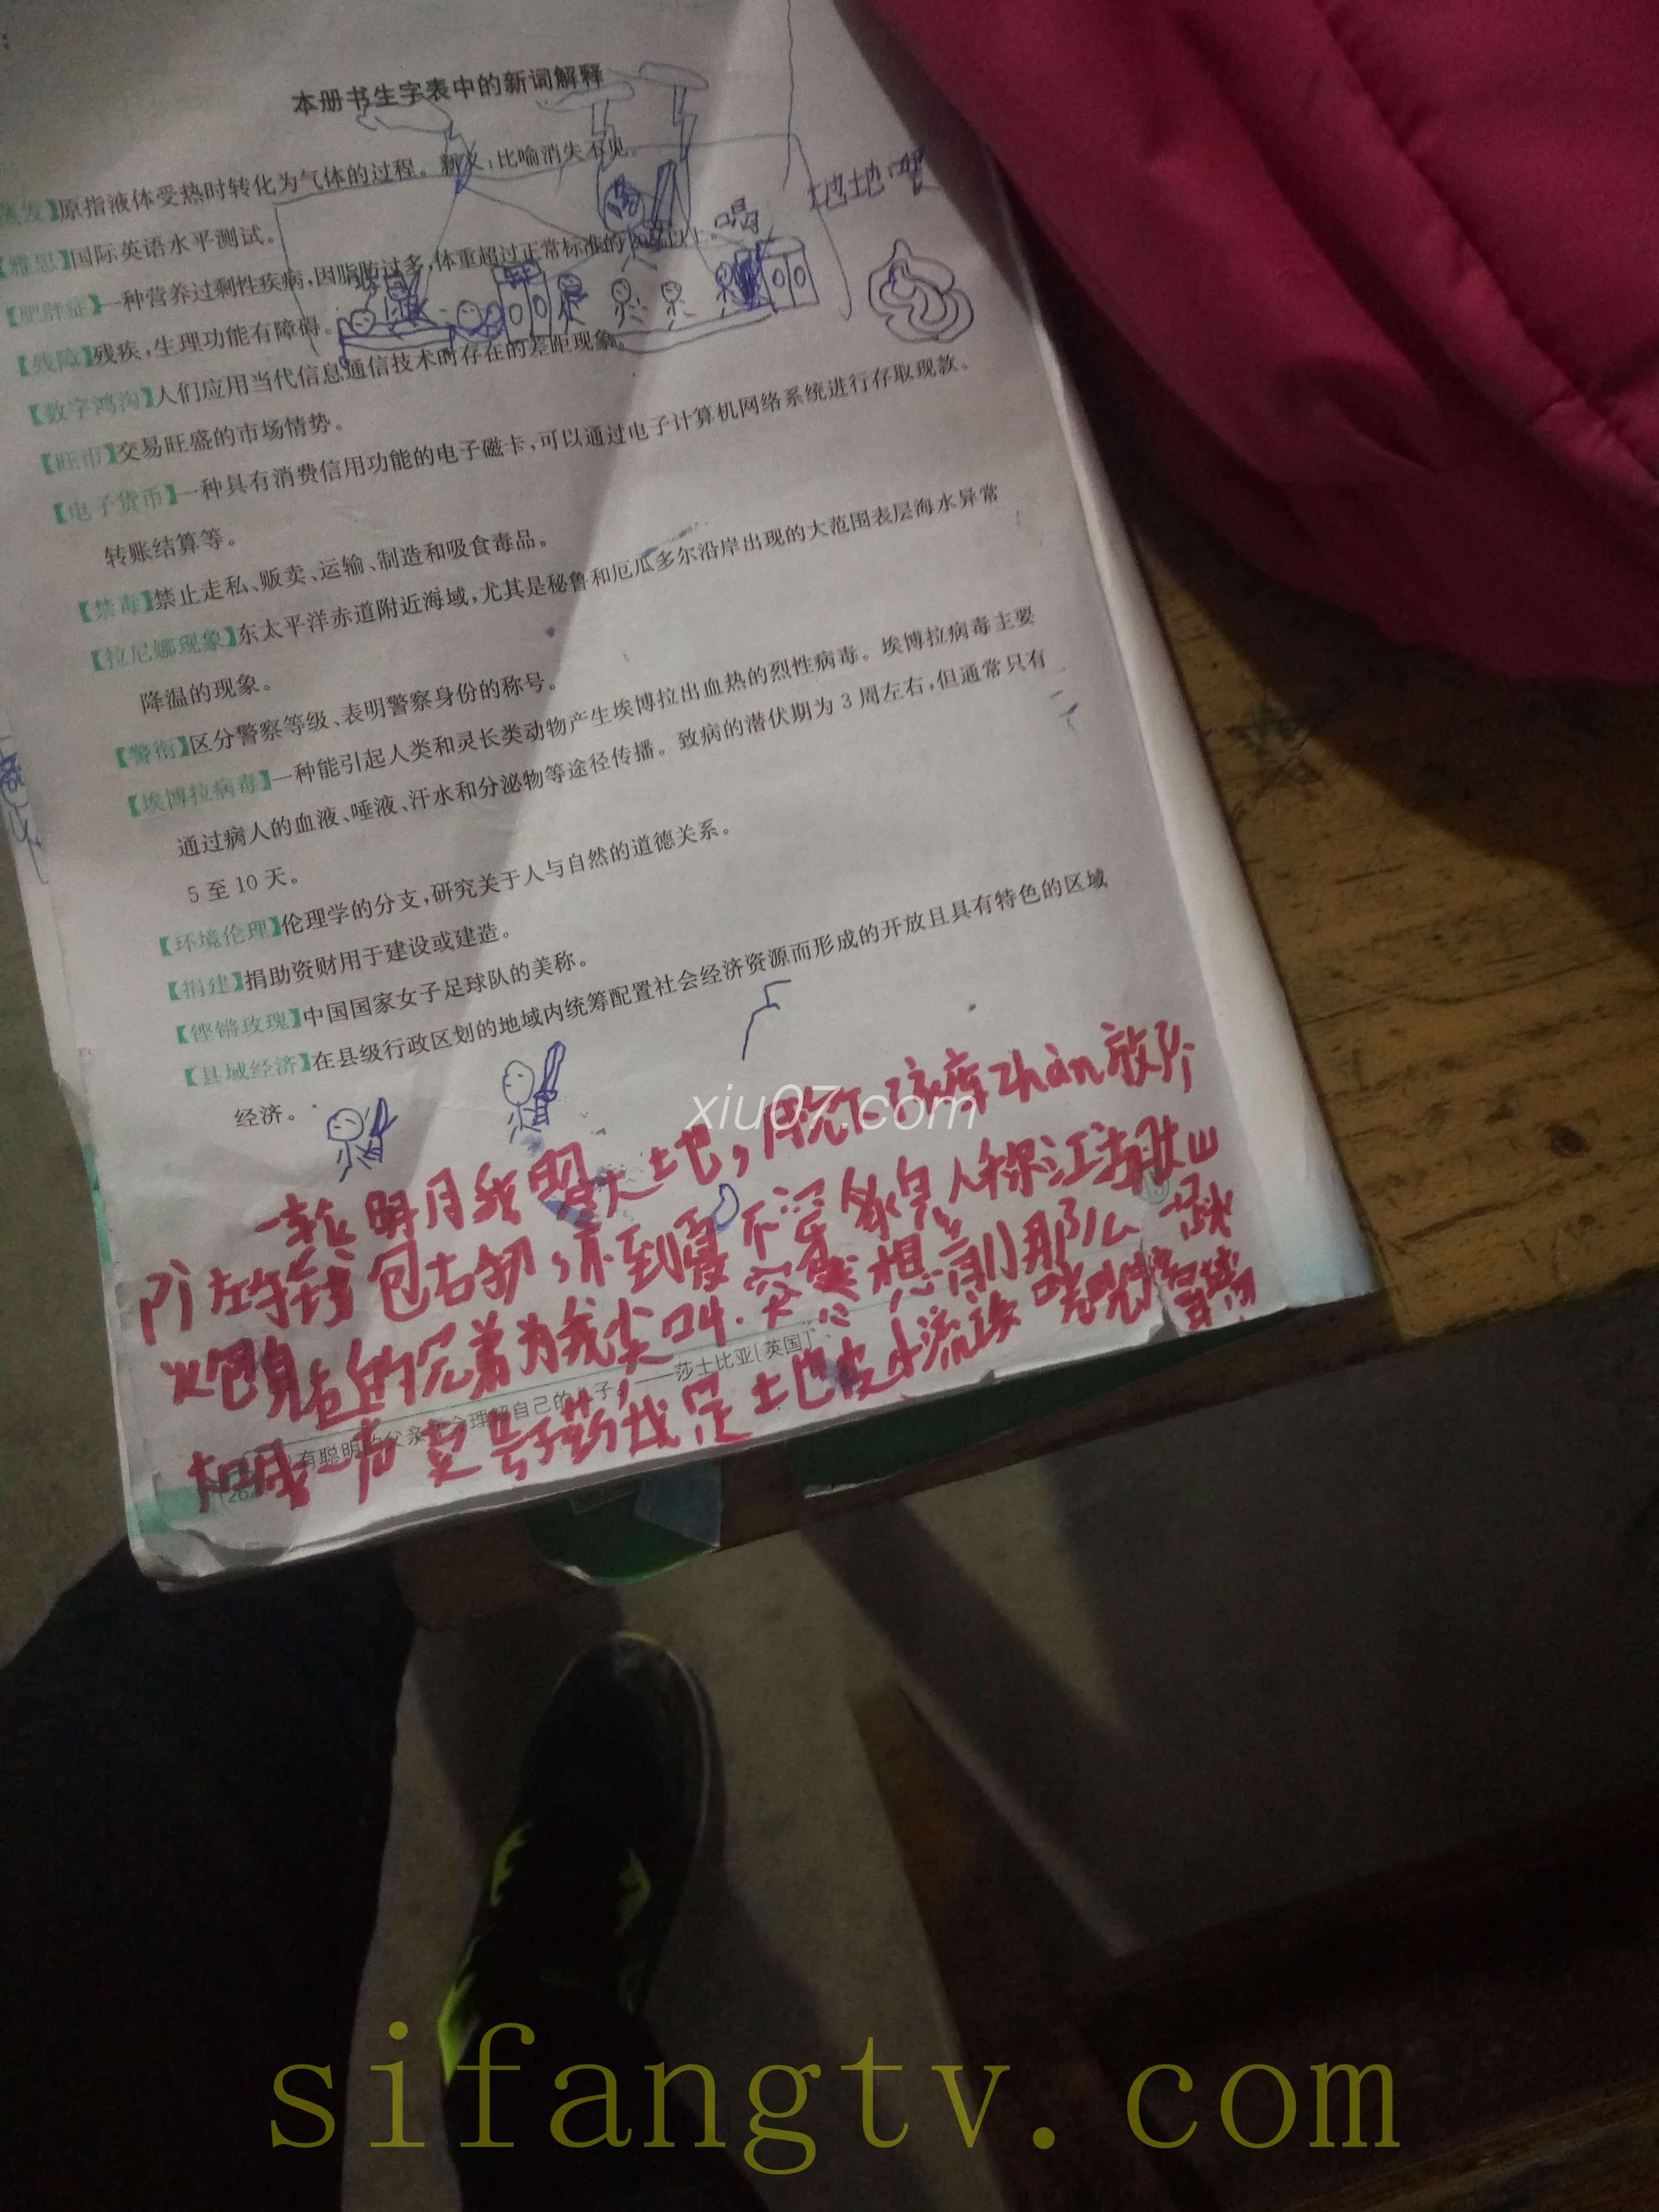 本册书生字表中的新词解释
【蒸发】原指液体受热时转化为气体的过程。新义:比喻消失不见。
地地喂
【雅思】国际英语水平测试。
喝
【肥胖症】一种营养过剩性疾病,因脂肪过多,体重超过正常标准的20%以上。
【残障】残疾,生理功能有障碍。
【数字鸿沟】人们应用当代信息通信技术时存在的差距现象。
【旺市】交易旺盛的市场情势。
【电子货币】一种具有消费信用功能的电子磁卡,可以通过电子计算机网络系统进行存取现款、
转账结算等。
【禁毒】禁止走私、贩卖、运输、制造和吸食毒品。
【拉尼娜现象】东太平洋赤道附近海域,尤其是秘鲁和厄瓜多尔沿岸出现的大范围表层海水异常
降温的现象。
【警衔】区分警察等级、表明警察身份的称号。
【埃博拉病毒】一种能引起人类和灵长类动物产生埃博拉出血热的烈性病毒。埃博拉病毒主要
通过病人的血液、唾液、汗水和分泌物等途径传播。致病的潜伏期为 3 周左右,但通常只有
5 至 10 天。
【环境伦理】伦理学的分支,研究关于人与自然的道德关系。
【捐建】捐助资财用于建设或建造。
【铿锵玫瑰】中国国家女子足球队的美称。
【县域经济】在县级行政区划的地域内统筹配置社会经济资源而形成的开放且具有特色的区域
经济。
xiu07.com
明月我 大地, zhàn放
左手 包右 不 人称江湖
的兄弟为我尖叫. 想 那么
一声 我是土地皮小流
有聪明的父亲 理解自己的 子。——莎士比亚[英国]
sifangtv.com